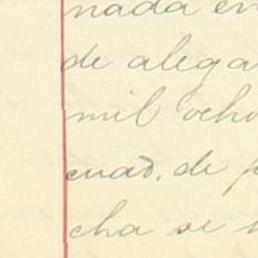 nada en
de alega
mil ocho
cuad. de
cha se